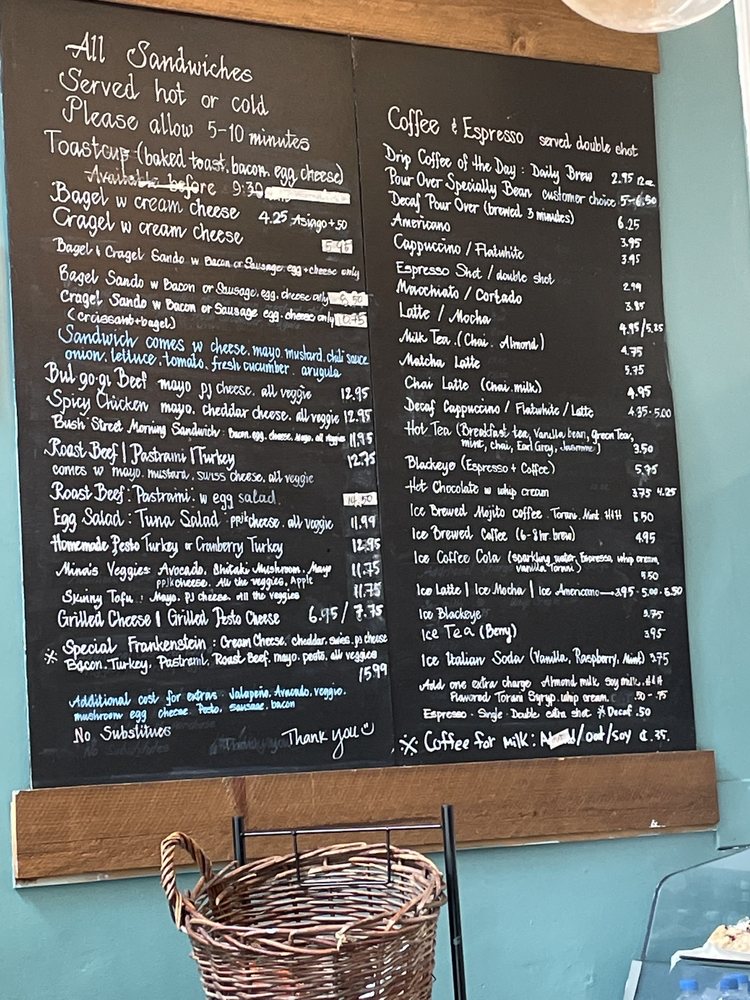 All Sandwiches
Served hot or cold
Please allow 5-10 minutes
Toastcup (baked toast, bacon, egg, cheese)
Available before 9:30
Bagel w cream cheese 4.25 Asiago +50
Cragel w cream cheese
Bagel & Cragel Sando w Bacon or Sausage, egg + cheese only
Bagel Sando w Bacon or Sausage, egg, cheese only
Cragel Sando w Bacon or Sausage egg, cheese only
(croissant+bagel)
Sandwich comes w cheese, mayo, mustard, chili sauce
onion, lettuce, tomato, fresh cucumber, arugula
Bul-go-gi Beef mayo, pj cheese, all veggie 12.95
Spicy Chicken mayo, cheddar cheese, all veggie 12.95
Bush Street Morning Sandwich: Bacon, egg, cheese, Mayo, all veggies 11.95
Roast Beef | Pastrami | Turkey 12.75
comes w mayo, mustard, swiss cheese, all veggie
Roast Beef: Pastrami: w egg salad 14.50
Egg Salad: Tuna Salad: ppjkcheese, all veggie 11.99
Homemade Pesto Turkey or Cranberry Turkey 12.95
Mina's Veggies: Avocado, Shitaki Mushroom, Mayo 11.75
ppjkcheese, All the veggies, Apple
Skinny Tofu: Mayo, PJ cheese, All the veggies 11.75
Grilled Cheese | Grilled Pesto Cheese 6.95 / 7.75
* Special Frankenstein: Cream Cheese, cheddar, swiss, pj cheese
Bacon, Turkey, Pastrami, Roast Beef, mayo, pesto, all veggies
15.99
Additional cost for extras Jalapeño, Avocado, veggie,
mushroom egg cheese Pesto, sausage, bacon
No Substitues
Thank you
Coffee & Espresso served double shot
Drip Coffee of the Day: Daily Brew 2.95 12oz
Pour Over Specialty Bean customer choice 5-6.50
Decaf Pour Over (brewed 3 minutes) 6.25
Americano 3.95
Cappuccino / Flatwhite 3.95
Espresso Shot / double shot 2.99
Macchiato / Cortado 3.85
Latte / Mocha 4.95/5.25
Milk Tea (Chai, Almond) 4.75
Matcha Latte 5.75
Chai Latte (Chai, milk) 4.95
Decaf Cappuccino / Flatwhite / Latte 4.35-5.00
Hot Tea (Breakfast tea, Vanilla bean, green Tea,
mint, chai, Earl Grey, Jasmine) 3.50
Blackeye (Espresso + Coffee) 5.75
Hot Chocolate w whip cream 3.75 4.25
Ice Brewed Mojito coffee Torani Mint 5.50
Ice Brewed Coffee (6-8hr brew) 4.95
Ice Coffee Cola (sparkling water, Espresso, whip cream,
Vanilla Torani)
5.50
Ice Latte | Ice Mocha | Ice Americano 3.95-5.00-5.50
Ice Blackeye 5.75
Ice Tea (Berry) 3.95
Ice Italian Soda (Vanilla, Raspberry, Mint) 3.75
Add one extra charge Almond milk, Soy milk
Flavored Torani Syryp, whip cream .50-.75
Espresso - Single - Double extra shot * Decaf .50
* Coffee for milk: /oat/soy .75